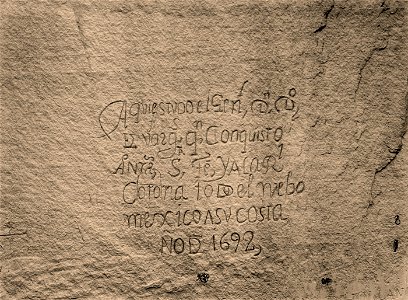 Aqui estuvo el Genl, Dn Do
D Vargs, qn Conquisto
A Nra, S, Fe, Y a la Rl
Corona todo el nuebo
mexico A su costa
Año D 1692,